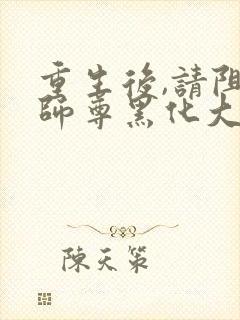 重生後,請阻
師尊黑化大
陳天策